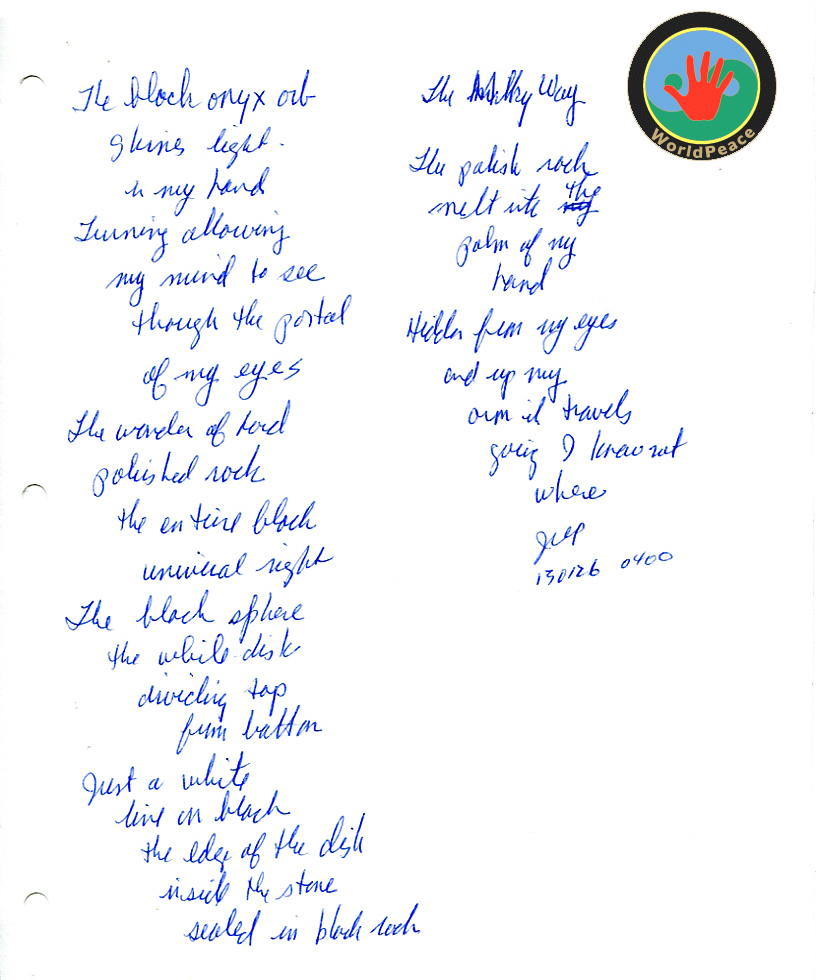 The black onyx orb
shines light
in my hand
Turning allowing
my mind to see
though the portal
of my eyes
The wonder of hard
polished rock
the entire black
universal night
The black sphere
the white disk
dividing top
from bottom
Just a white
line on black
the edge of the disk
inside the stone
sealed in black rock
The Milky Way
The polish rock
melt into the
palm of my
hand
Hidden from my eyes
and up my
arm it travels
going I know not
where
130126 0400
WorldPeace